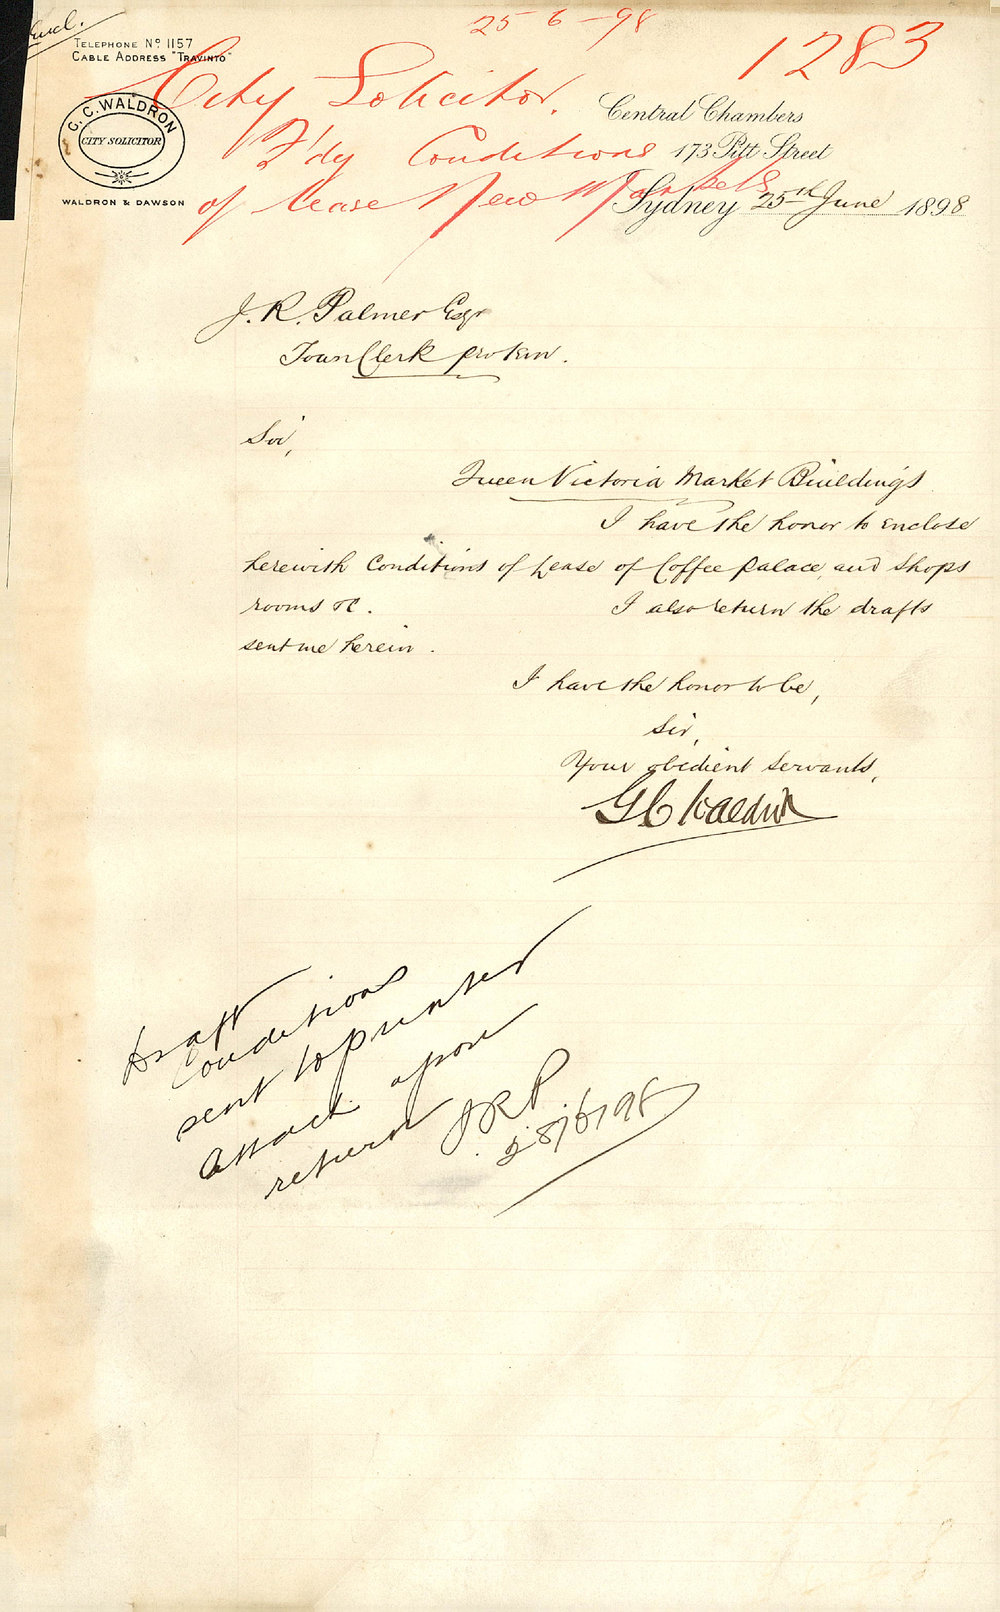 Encl.
25-6-98
1283
TELEPHONE Nº 1157
CABLE ADDRESS "TRAVINTO"
City Solicitor.
F'dg Conditions
of lease New Markets
G.C. WALDRON
CITY SOLICITOR
WALDRON & DAWSON
Central Chambers
173 Pitt Street
Sydney 25th June 1898
J. R. Palmer Esqr
Town Clerk pro tem.
Sir,
Queen Victoria Market Buildings
I have the honor to enclose
herewith Conditions of Lease of Coffee Palace, and Shops
rooms &c. I also return the drafts
sent me herein.
I have the honor to be,
Sir,
Your obedient Servants,
G C Waldron
Draft
Conditions
sent to printer
attach upon
return JRP
28/6/98